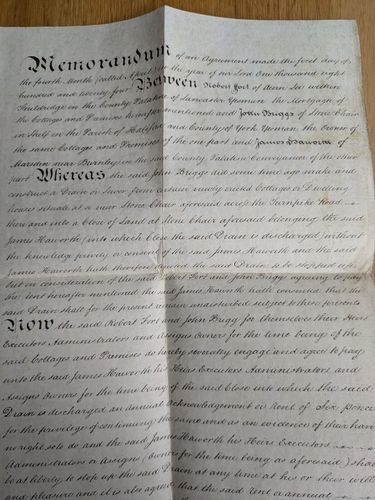 Memorandum of an Agreement made the first day of
the fourth Month called April in the year of our Lord One thousand eight
hundred and twenty four Between Robert Fort of
in the County Palatine of Lancaster Yeoman the Mortgagee of
the Cottages and Premises hereafter mentioned and John Briggs of Stone Chair
in Shelf in the Parish of Halifax and County of York Yeoman the Owner of
the same Cottages and Premises of the one part and James Haworth of
Marsden near Burnley in the said County Palatine Conveyancer of the other
part Whereas the said John Briggs did some time ago make and
construct a Drain or Sewer from certain newly erected Cottages or Dwelling
houses situate at or near Stone Chair aforesaid across the Turnpike Road
there and into a Close of Land at Stone Chair aforesaid belonging the said
James Haworth into which Close the said Drain is discharged without
the knowledge privity or consent of the said James Haworth and the said
James Haworth hath therefore the said Drain to be stopped up
but in consideration of the said Robert Fort and John Briggs agreeing to pay
the Rent hereafter mentioned the said James Haworth hath consented that the
said Drain shall for the present remain undisturbed subject to these presents
Now the said Robert Fort and John Briggs for themselves their Heirs
Executors Administrators and Assigns Owners for the time being of the
said Cottages and Premises do hereby severally engage and agree to pay
unto the said James Haworth his Heirs Executors Administrators and
Assigns Owners for the time being of the said Close into which the said
Drain is discharged an annual acknowledgement or Rent of Six pence
for the privilege of continuing the same and as an evidence of their having
no right so to do and the said James Haworth his Heirs Executors
Administrators or Assigns (Owners for the time being as aforesaid) shall
be at liberty to stop up the said Drain at any time at his or their will
and pleasure and it is also agreed that the said Rent or annual